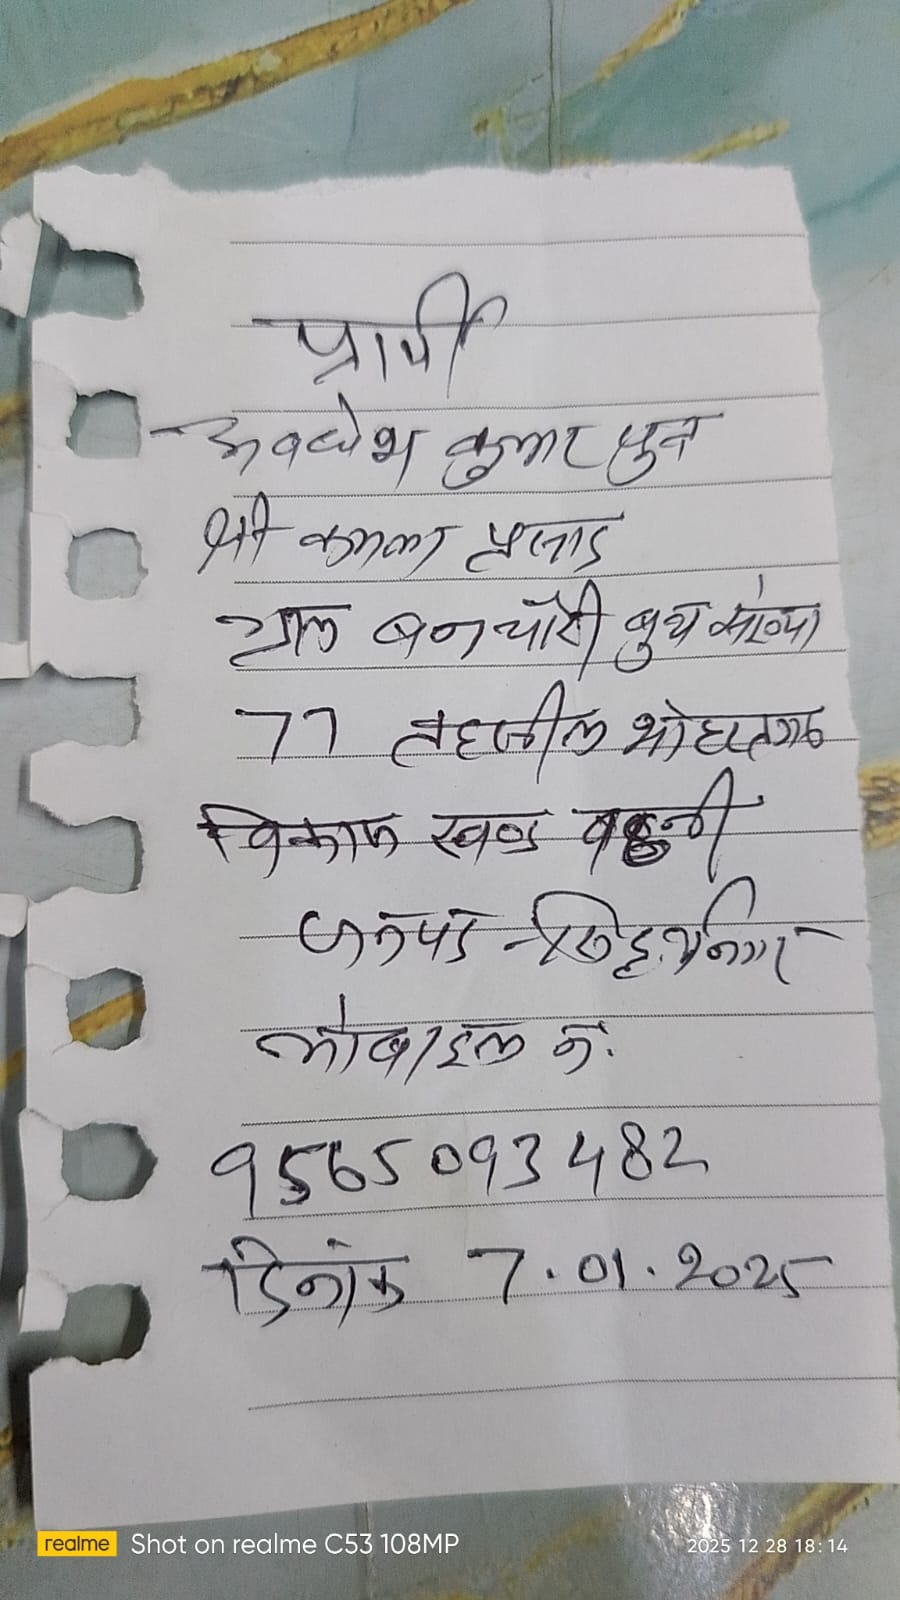 प्रार्थी
अवधेश कुमार पुत्र
श्री कमला प्रसाद
ग्राम बनचौरी बुथ संख्या
77 तहसील शोहरतगढ
विकास खण्ड बढ़नी
जनपद सिद्धार्थनगर
मोबाइल नं.
9565093482
दिनांक 7.01.2025
realme Shot on realme C53 108MP
2025 12 28 18:14